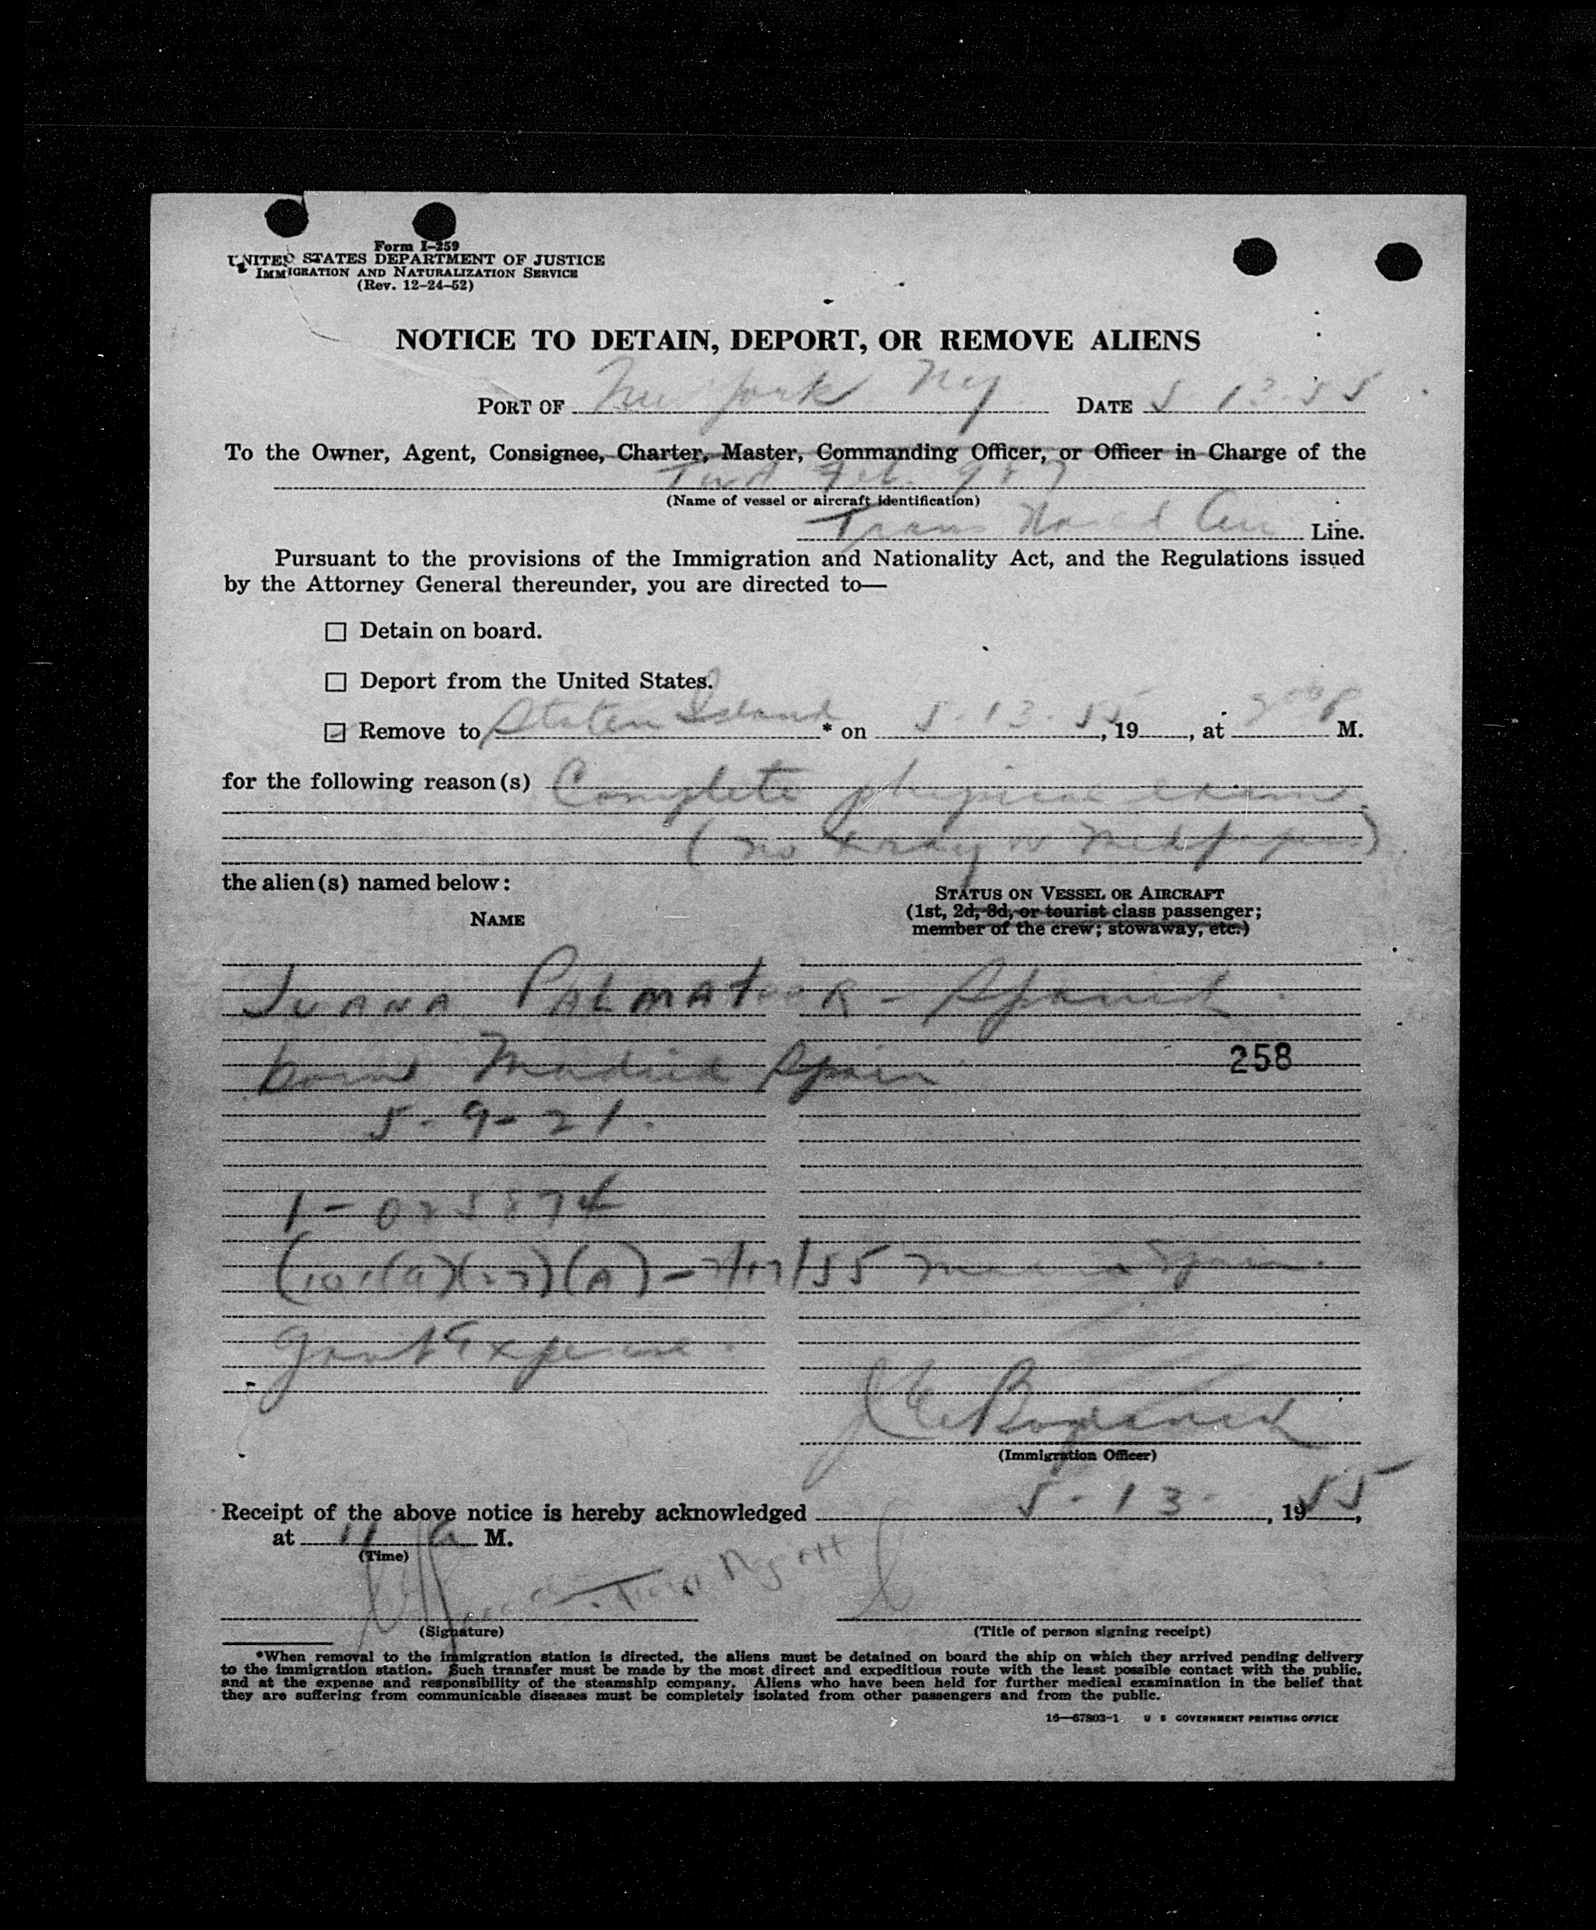 Form I-259
UNITED STATES DEPARTMENT OF JUSTICE
IMMIGRATION AND NATURALIZATION SERVICE
(Rev. 12-24-52)
NOTICE TO DETAIN, DEPORT, OR REMOVE ALIENS
PORT OF New York NY DATE 5 13-55
To the Owner, Agent, Consignee, Charter, Master, Commanding Officer, or Officer in Charge of the
(Name of vessel or aircraft identification)
Trans World Air Line.
Pursuant to the provisions of the Immigration and Nationality Act, and the Regulations issued
by the Attorney General thereunder, you are directed to—
☐ Detain on board.
☐ Deport from the United States.
☑ Remove to Staten Island * on 5-13-55, 19 , at M.
for the following reason(s) Complete physical exam
(no xray or Med papers)
the alien(s) named below:
STATUS ON VESSEL OR AIRCRAFT
(1st, 2d, 3d, or tourist class passenger;
member of the crew; stowaway, etc.)
NAME
JUANA PALMATEER - Spanish
born Madrid Spain
258
5-9-21.
(A) - /55 Spain.
Govt Expense.
(Immigration Officer)
Receipt of the above notice is hereby acknowledged 5-13-, 1955,
at 11 a M.
(Time)
(Signature)
(Title of person signing receipt)
*When removal to the immigration station is directed, the aliens must be detained on board the ship on which they arrived pending delivery
to the immigration station. Such transfer must be made by the most direct and expeditious route with the least possible contact with the public,
and at the expense and responsibility of the steamship company. Aliens who have been held for further medical examination in the belief that
they are suffering from communicable diseases must be completely isolated from other passengers and from the public.
16—67803-1 U S GOVERNMENT PRINTING OFFICE